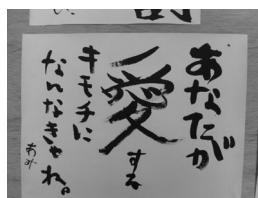 あなたが
愛する
キモチに
なんなきゃね。
あみ